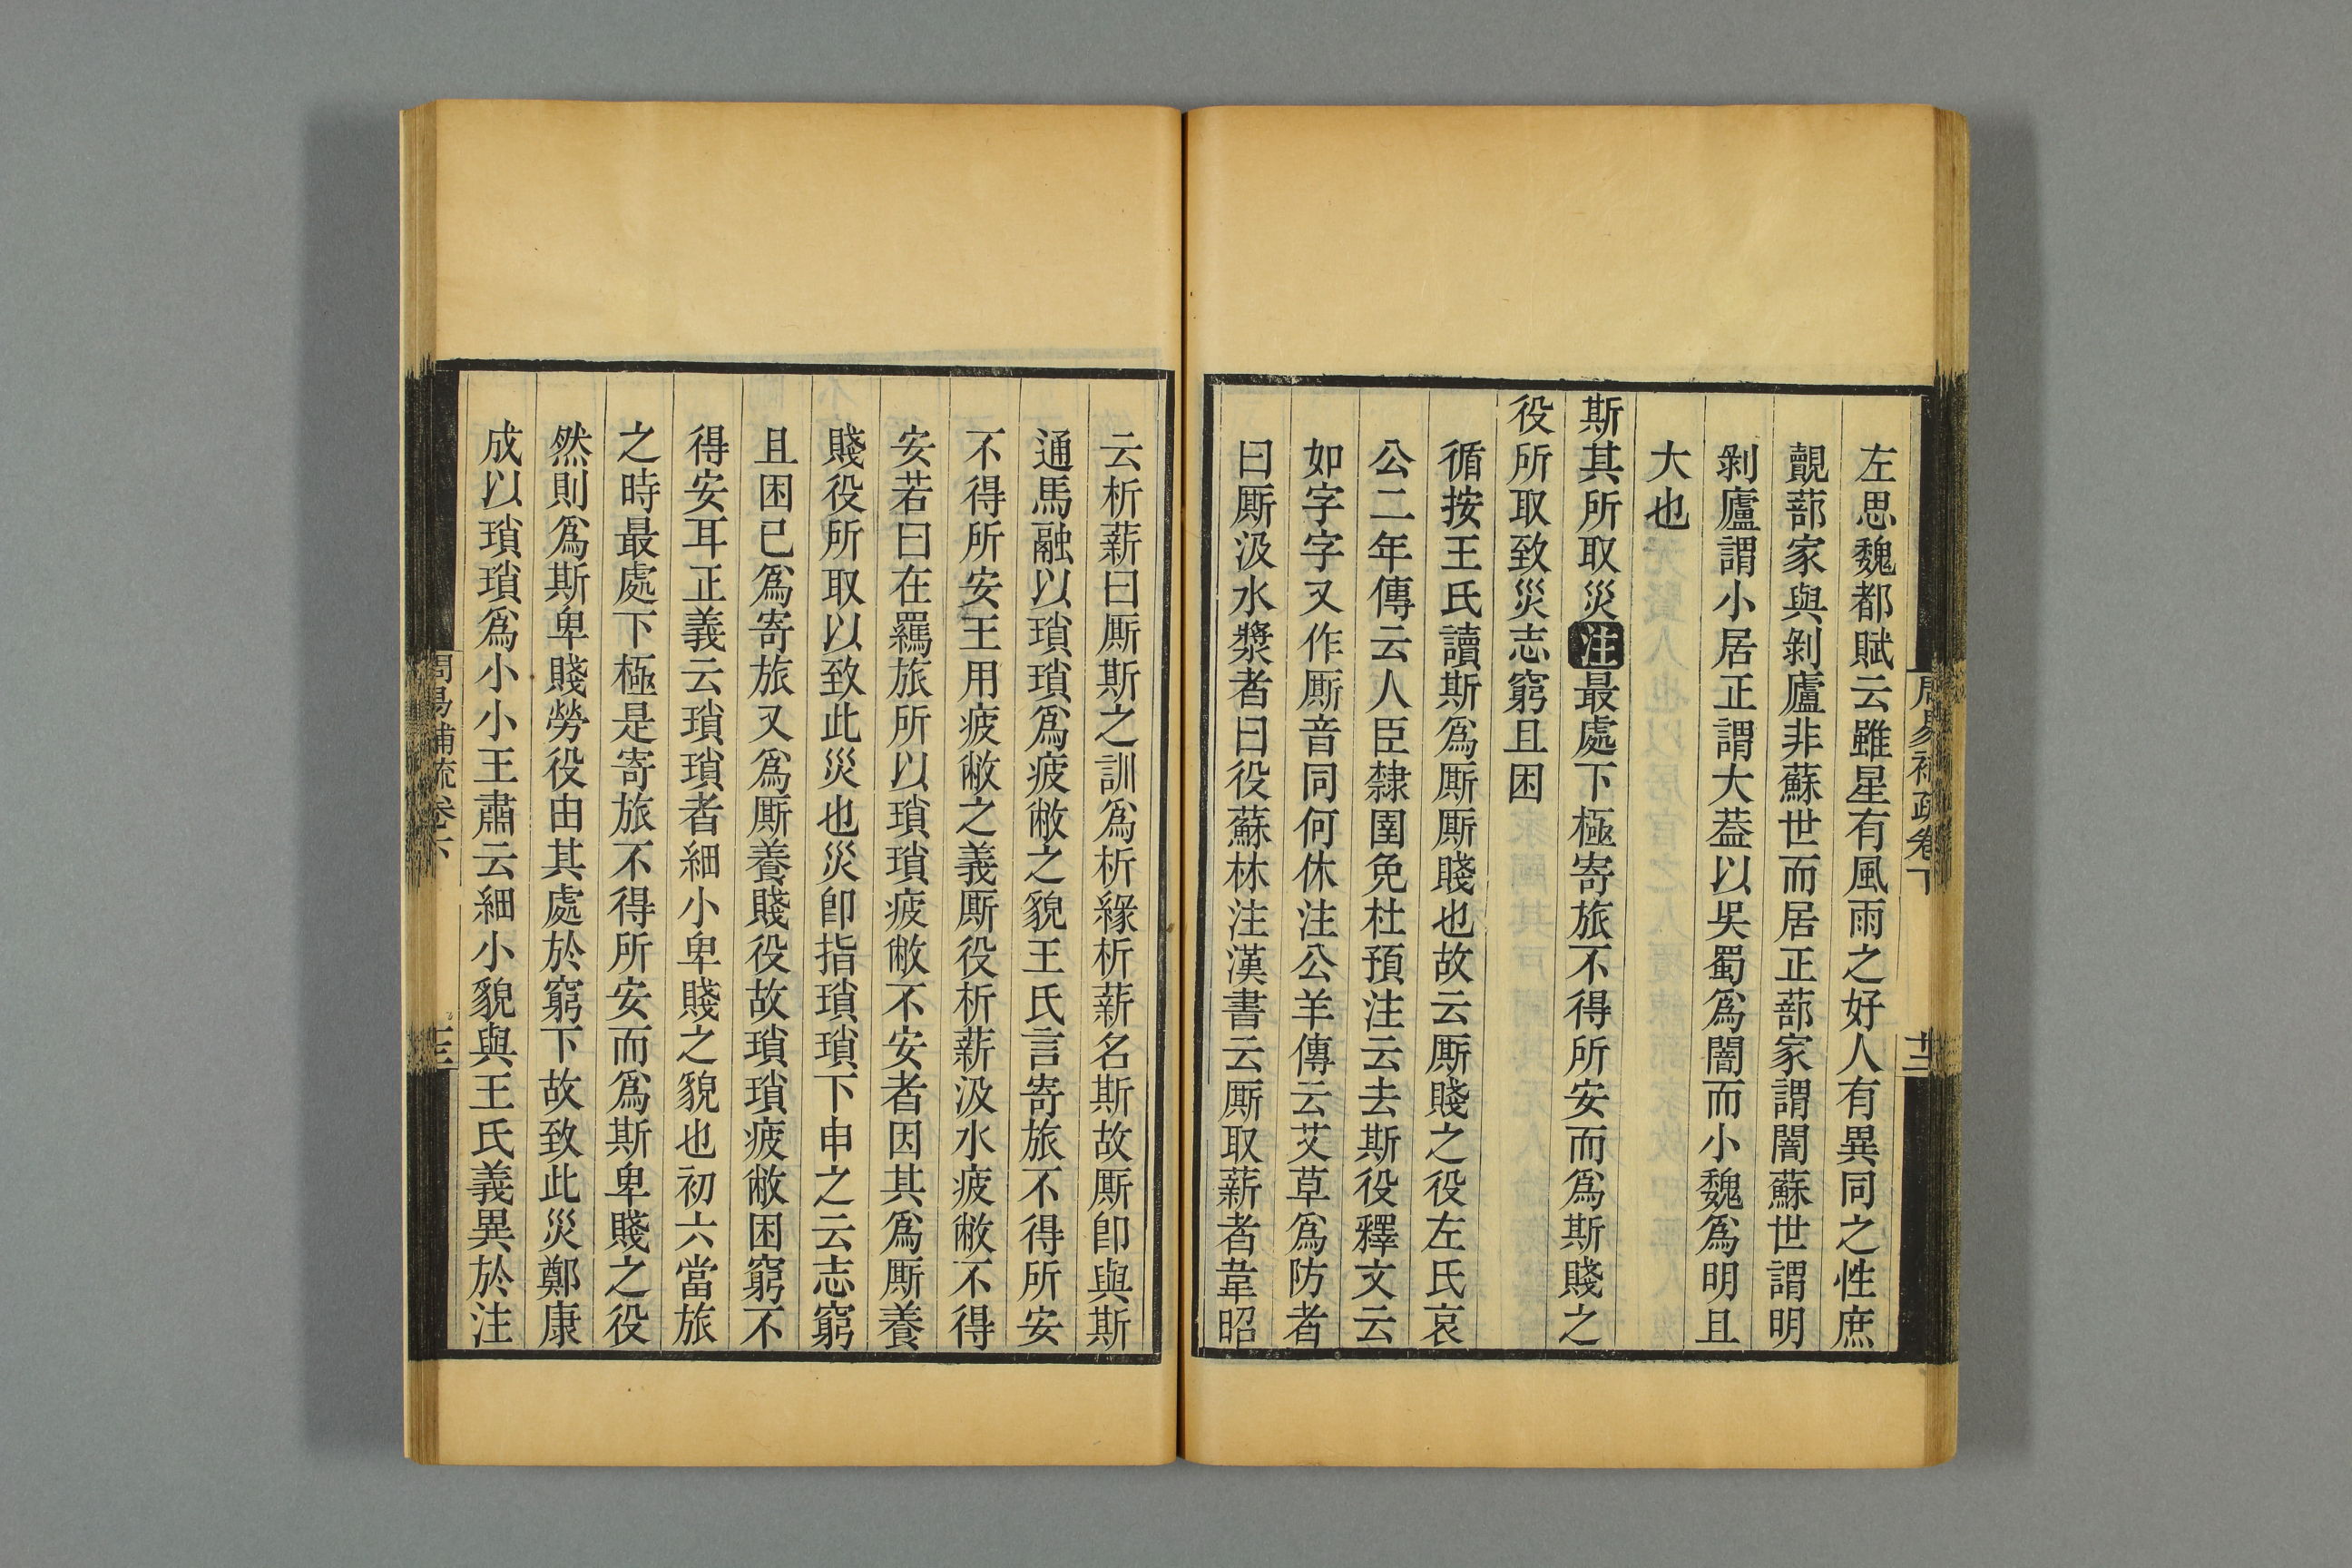 周易補疏卷下
左思魏都賦云雖星有風雨之好人有異同之性庶
覿蔀家與剝廬非蘇世而居正蔀家謂闇蘇世謂明
剝廬謂小居正謂大葢以吳蜀爲闇而小魏爲明且
大也
斯其所取災注最處下極寄旅不得所安而爲斯賤之
役所取致災志窮且困
循按王氏讀斯爲厮厮賤也故云厮賤之役左氏哀
公二年傳云人臣隸圉免杜預注云去斯役釋文云
如字字又作厮音同何休注公羊傳云艾草爲防者
曰厮汲水漿者曰役蘇林注漢書云厮取薪者韋昭
云析薪曰厮斯之訓爲析緣析薪名斯故厮卽與斯
通馬融以瑣瑣爲疲敝之貌王氏言寄旅不得所安
不得所安王用疲敝之義厮役析薪汲水疲敝不得
安若曰在羈旅所以瑣瑣疲敝不安者因其爲厮養
賤役所取以致此災也災卽指瑣瑣下申之云志窮
且困已爲寄旅又爲厮養賤役故瑣瑣疲敝困窮不
得安耳正義云瑣瑣者細小卑賤之貌也初六當旅
之時最處下極是寄旅不得所安而爲斯卑賤之役
然則爲斯卑賤勞役由其處於窮下故致此災鄭康
成以瑣瑣爲小小王肅云細小貌與王氏義異於注
周易補疏卷下